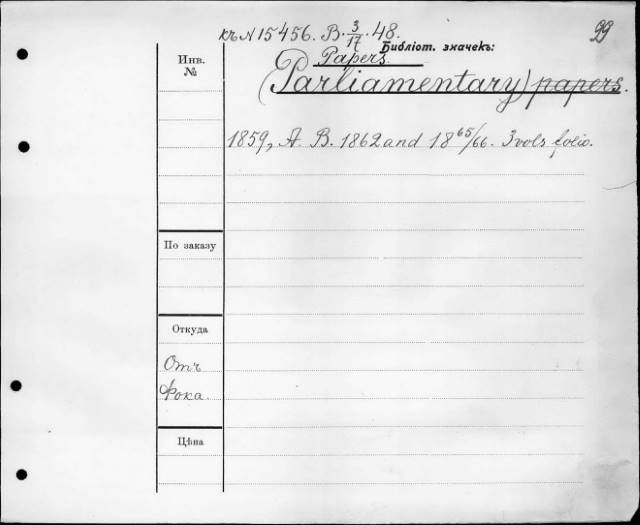 къ N 15456. B. 3/17. 48.
99
Библіот. значекъ:
Инв.
№
Papers.
(Parliamentary) papers.
1859, A. B. 1862 and 18 65/66. 3 vols folio.
По заказу
Откуда
Отъ
Фока.
Цѣна